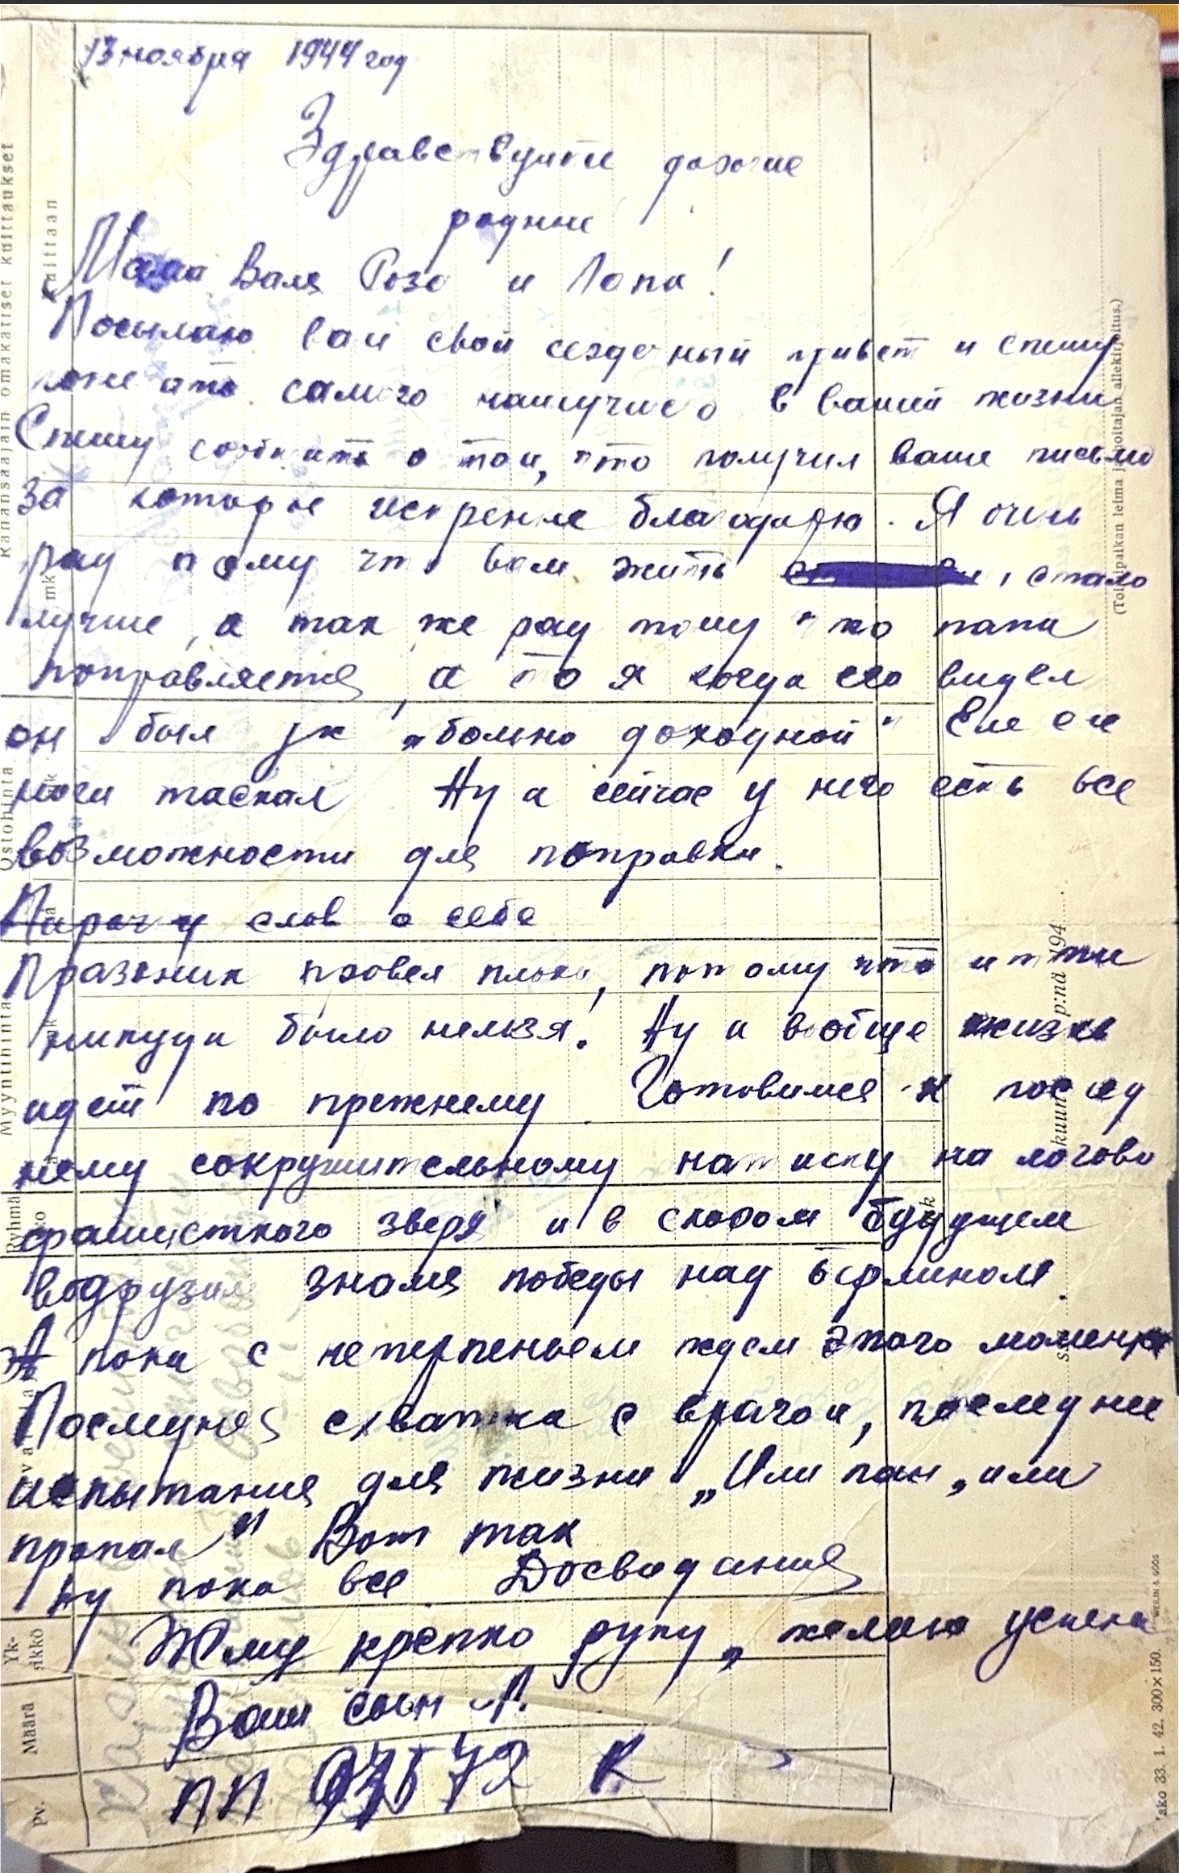 13 ноября 1944 год
Здравствуйте дорогие
родные
Мама Валя Роза и Папа!
Посылаю вам свой сердечный привет и спешу
пожелать самого наилучшего в вашей жизни
Спешу сообщить о том, что получил ваше письмо
за которые искренне благодарю. Я очень
рад тому что вам жить стало
лучше, а так же рад тому что папа
поправляется, а то я когда его видел
он был уж „больно доходной" Еле еле
ноги таскал Ну а сейчас у него есть все
возможности для поправки.
Пару слов о себе
Празник провел плохо, потому что итти
никуда было нельзя. Ну а вобще жизнь
идет по прежнему. Готовимся к послед
нему сокрушительному натиску на логово
фашисткого зверя и в скором будущем
водрузим знамя победы над Берлином.
А пока с нетерпеньем ждем этого момента
Последняя схватка с врагом, последние
испытания для жизни „Или пан, или
пропал" Вот так
Ну пока все. Досвидания
Жму крепко руку, желаю успеха
Ваш сын А.
ПП К
Kanansaajain omakätiset kuittaukset
kuittaan
mk
Ostohinta
Myyntihinta
Ryhmä
Yk-
sikkö
Määrä
Pv.
(Toimipaikan leima ja hoitajan allekirjoitus.)
kuun p:nä 194
ako 33. 1. 42. 300×150.